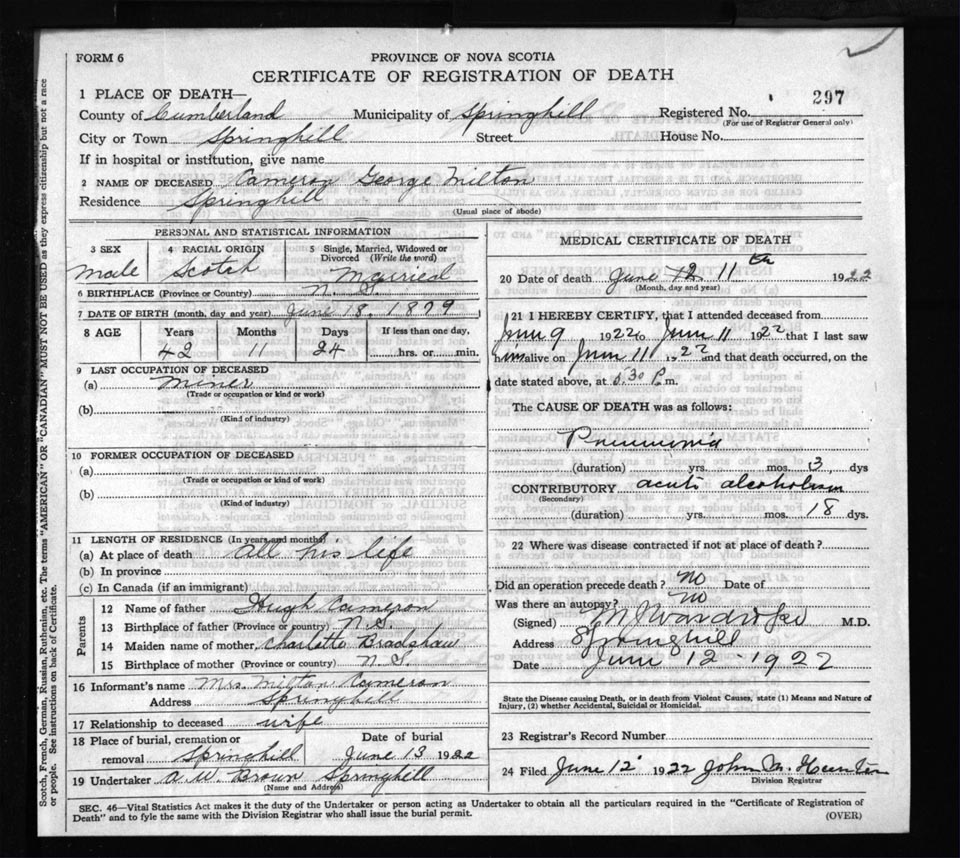 FORM 6
PROVINCE OF NOVA SCOTIA
CERTIFICATE OF REGISTRATION OF DEATH
297
1 PLACE OF DEATH—
County of Cumberland Municipality of Springhill Registered No.
(For use of Registrar General only)
City or Town Springhill Street House No.
If in hospital or institution, give name
2 NAME OF DECEASED Cameron George Milton
Residence Springhill
(Usual place of abode)
PERSONAL AND STATISTICAL INFORMATION
3 SEX 4 RACIAL ORIGIN 5 Single, Married, Widowed or Divorced (Write the word)
Male Scotch Married
6 BIRTHPLACE (Province or Country) N.S.
7 DATE OF BIRTH (month, day and year) June 18, 1879
8 AGE Years Months Days If less than one day,
42 11 24 hrs. or min.
9 LAST OCCUPATION OF DECEASED
(a) Miner
(Trade or occupation or kind or work)
(b)
(Kind of industry)
10 FORMER OCCUPATION OF DECEASED
(a)
(Trade or occupation or kind of work)
(b)
(Kind of industry)
11 LENGTH OF RESIDENCE (In years and months)
(a) At place of death all his life
(b) In province
(c) In Canada (if an immigrant)
Parents
12 Name of father Hugh Cameron
13 Birthplace of father (Province or country) N.S.
14 Maiden name of mother Charlotte Bradshaw
15 Birthplace of mother (Province or country) N.S.
16 Informant's name Mrs. Milton Cameron
Address Springhill
17 Relationship to deceased wife
18 Place of burial, cremation or removal Springhill Date of burial June 13 1922
19 Undertaker A.W. Brown Springhill
(Name and Address)
MEDICAL CERTIFICATE OF DEATH
20 Date of death June 12 11th 1922
(Month, day and year)
21 I HEREBY CERTIFY, that I attended deceased from
June 9 1922 to June 11 1922 that I last saw
him alive on June 11 1922 and that death occurred, on the
date stated above, at 5.30 P.m.
The CAUSE OF DEATH was as follows:
Pneumonia
(duration) yrs. mos. 3 dys
CONTRIBUTORY acute alcoholism
(Secondary)
(duration) yrs. mos. 18 dys.
22 Where was disease contracted if not at place of death?
Did an operation precede death? No Date of
Was there an autopsy? No
(Signed) M.D.
Address Springhill
Date June 12 - 1922
State the Disease causing Death, or in death from Violent Causes, state (1) Means and Nature of
Injury, (2) whether Accidental, Suicidal or Homicidal.
23 Registrar's Record Number
24 Filed June 12 1922 John M. Hunter
Division Registrar
SEC. 46—Vital Statistics Act makes it the duty of the Undertaker or person acting as Undertaker to obtain all the particulars required in the "Certificate of Registration of
Death" and to fyle the same with the Division Registrar who shall issue the burial permit.
(OVER)
Scotch, French, German, Russian, Ruthenian, etc. The terms "AMERICAN" OR "CANADIAN" MUST NOT BE USED as they express citizenship but not a race
or people. See instructions on back of Certificate.